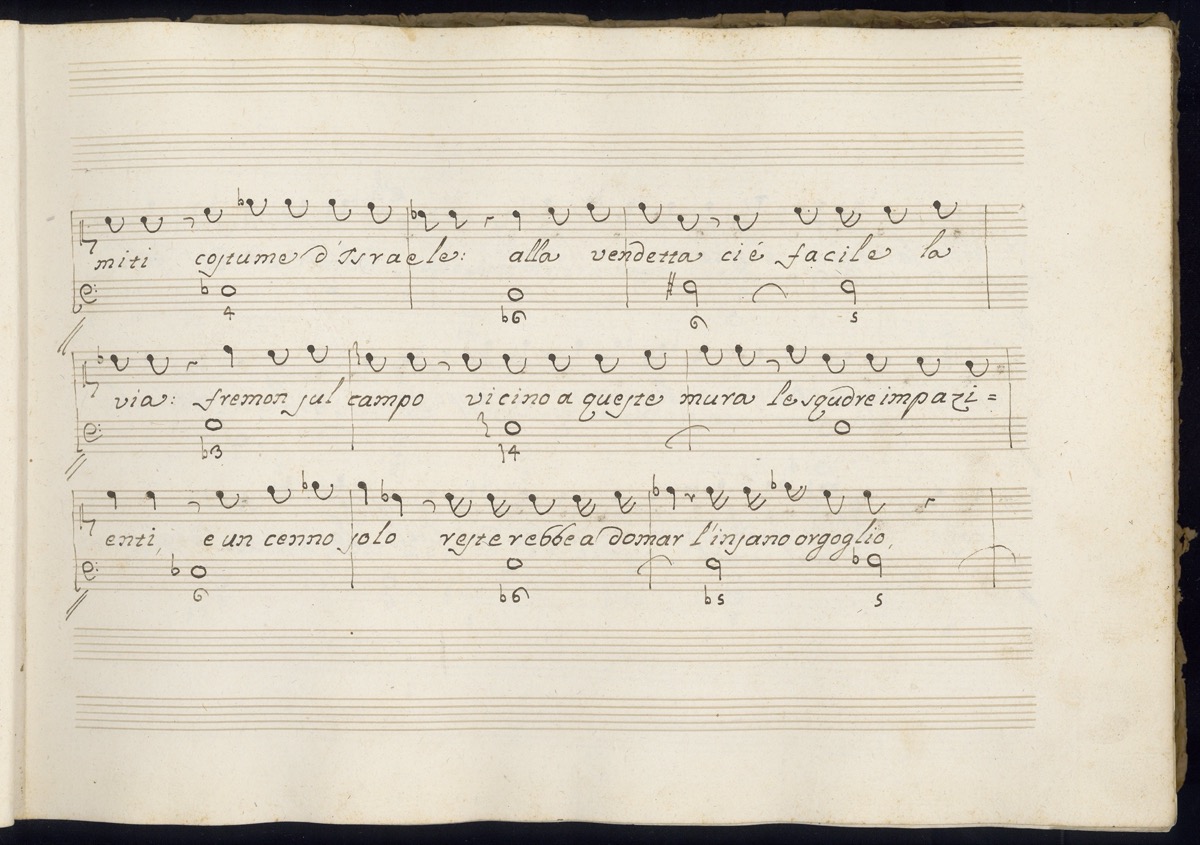 miti costume d'Israele: alla vendetta ci é facile la
4 b6 6 5
via: fremon sul campo vicino a queste mura le squdre impazi=
b3 4
enti, e un cenno solo resterebbe a domar l'insano orgoglio,
6 b6 b5 5